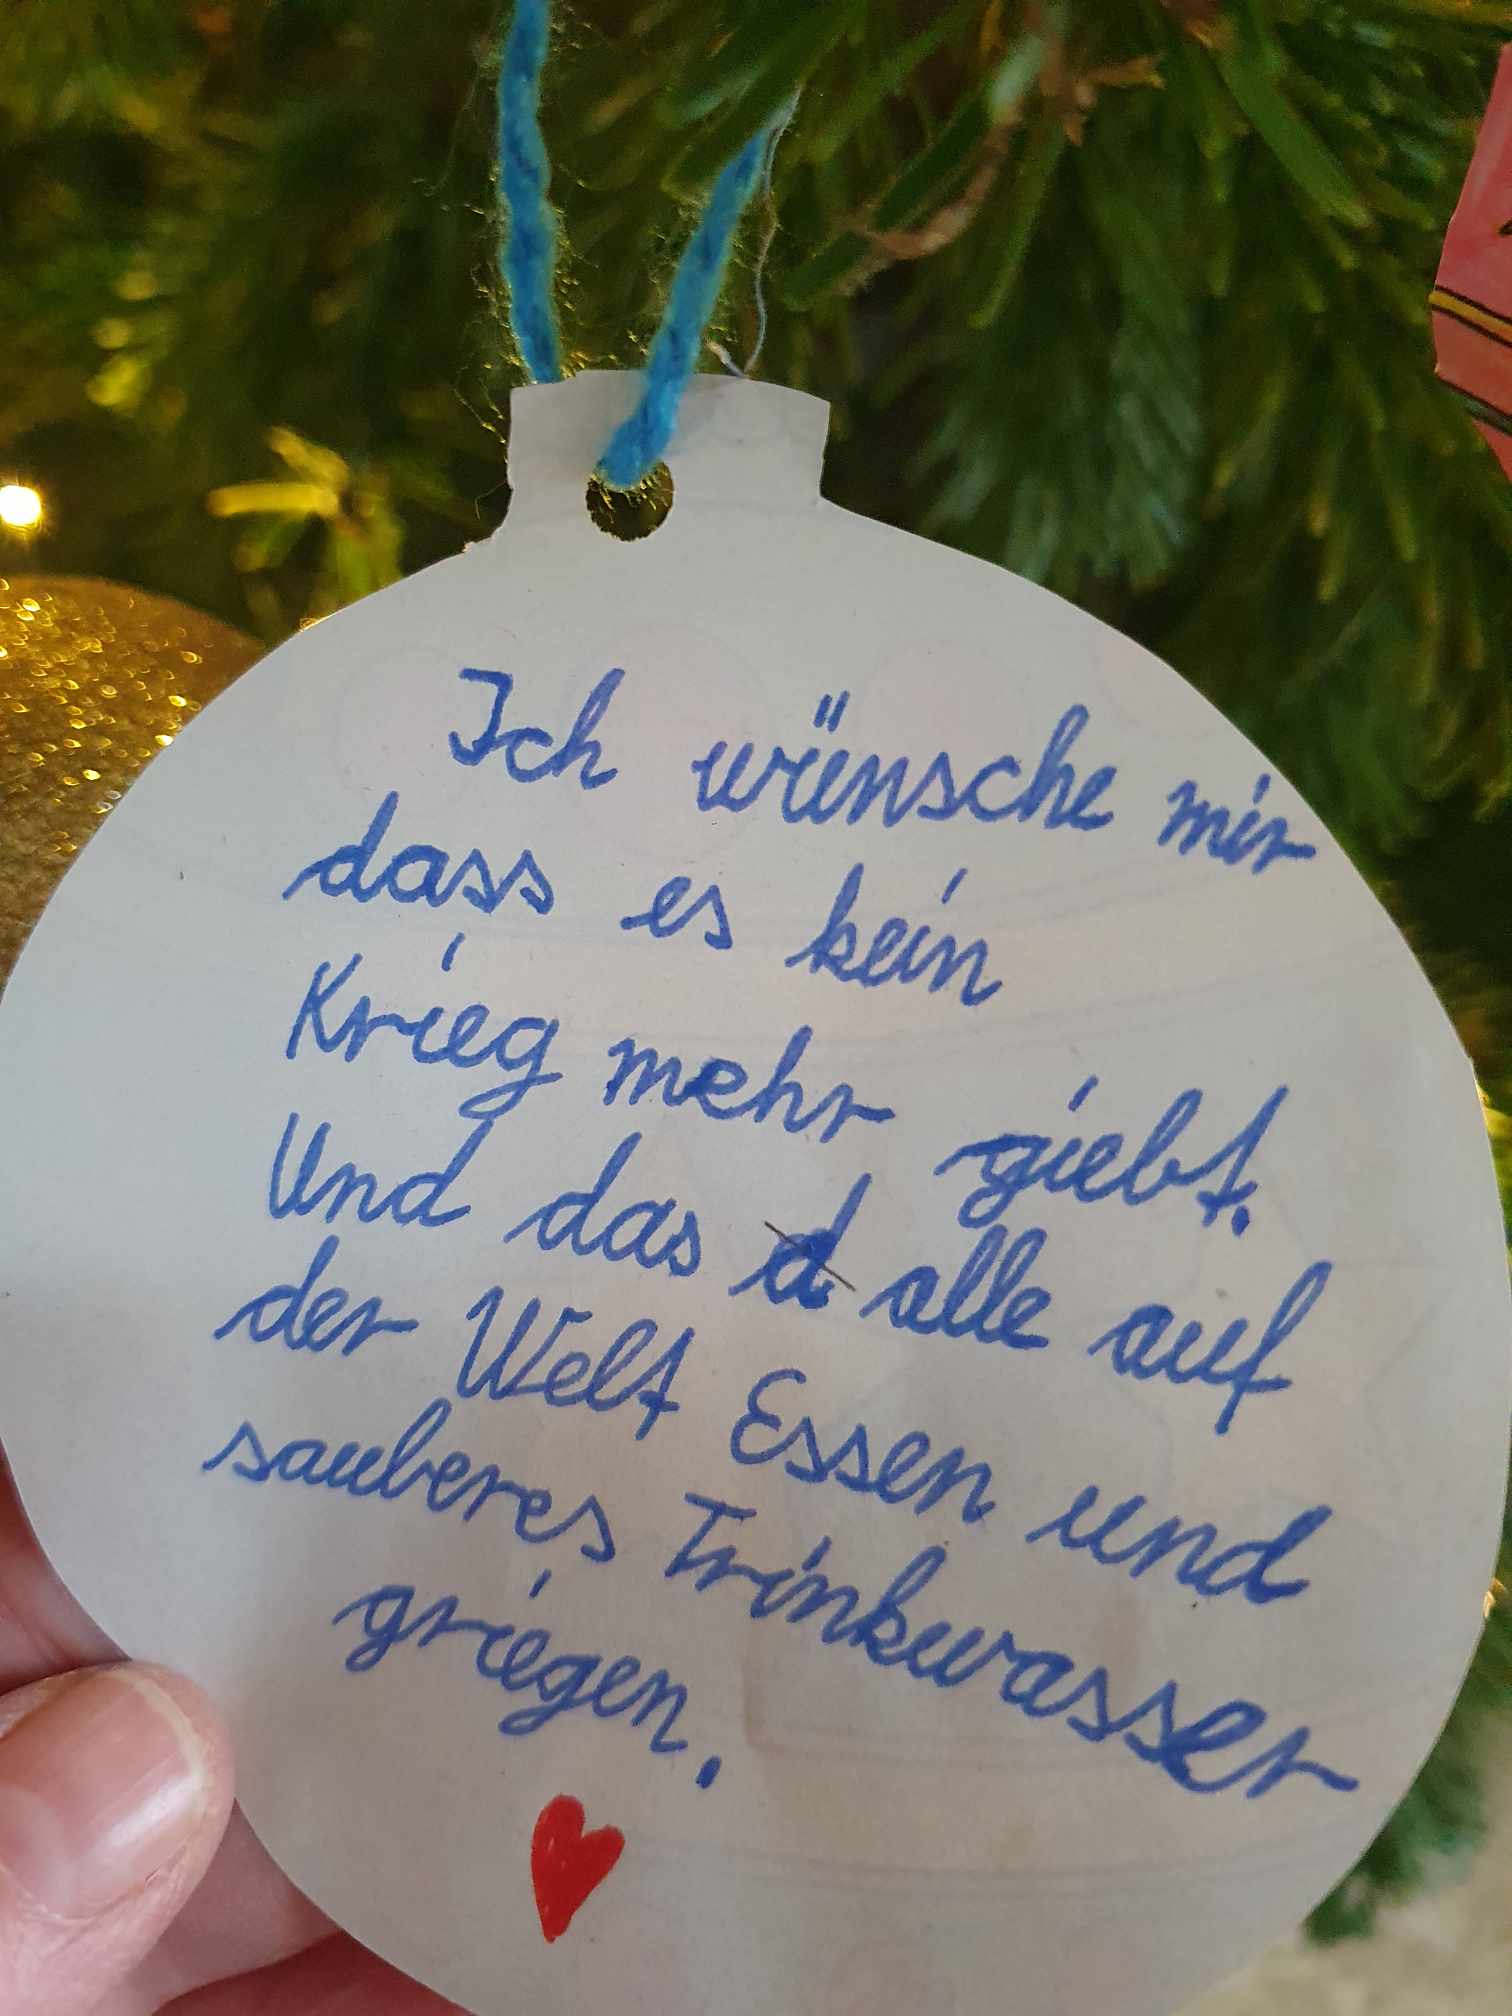 Ich wünsche mir
dass es kein
Krieg mehr giebt.
Und das alle auf
der Welt Essen und
sauberes Trinkwasser
griegen.